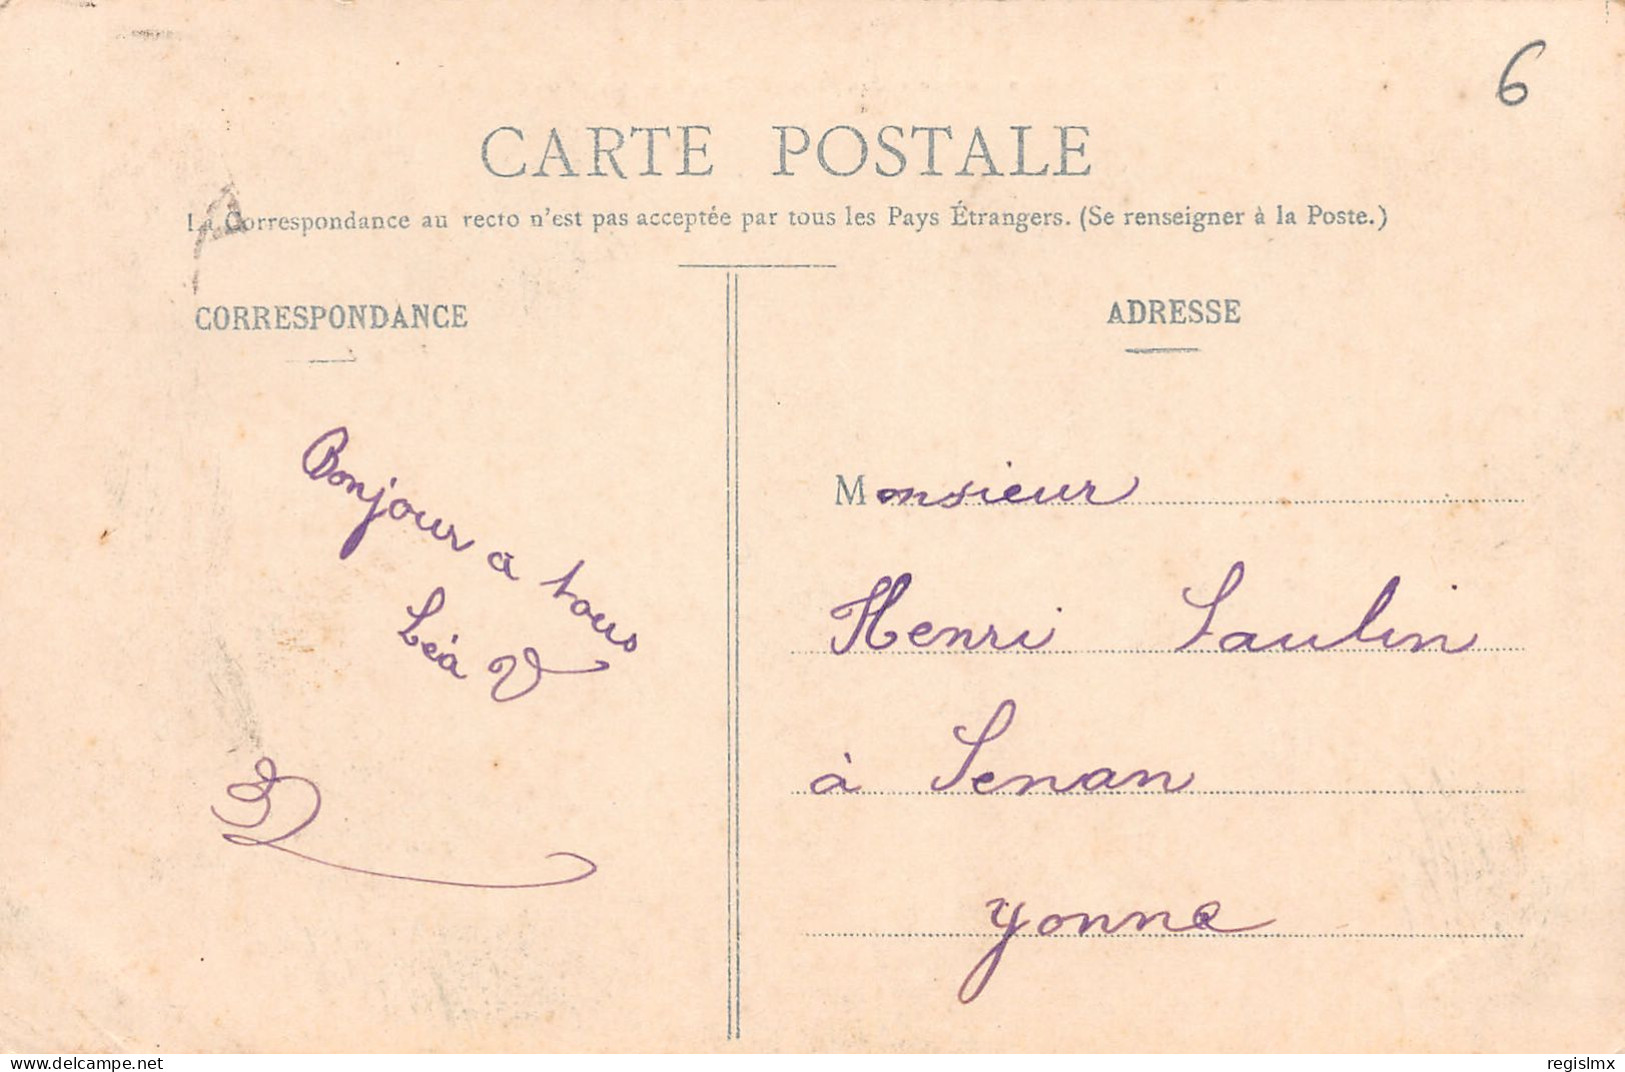 6
CARTE POSTALE
La Correspondance au recto n'est pas acceptée par tous les Pays Étrangers. (Se renseigner à la Poste.)
CORRESPONDANCE
Bonjour à tous
Léa V
ADRESSE
Monsieur
Henri Saulin
à Senan
Yonne
www.delcampe.net
regislmx